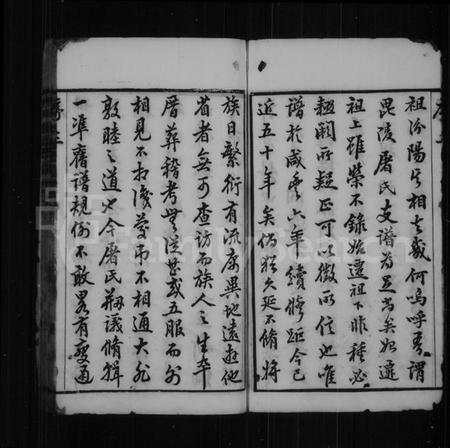 祖汾陽者相去幾何嗚呼吾謂
毘陵屠氏支譜為足尚矣始遷
祖上雖榮不錄始遷祖下非種必
鋤闕所疑正可以徵所信也唯
譜於咸豐六年續修距今已
近五十年矣倘猶久延不脩將
族日繁衍有流寓異地遠遊他
省者無可查訪而族人之生卒
厝葬稽考無從甚或五服而外
相見不相識慶弔不相通大非
敦睦之道也今屠氏剏議脩輯
一準舊譜規例不敢畧有變通
FamilySearch